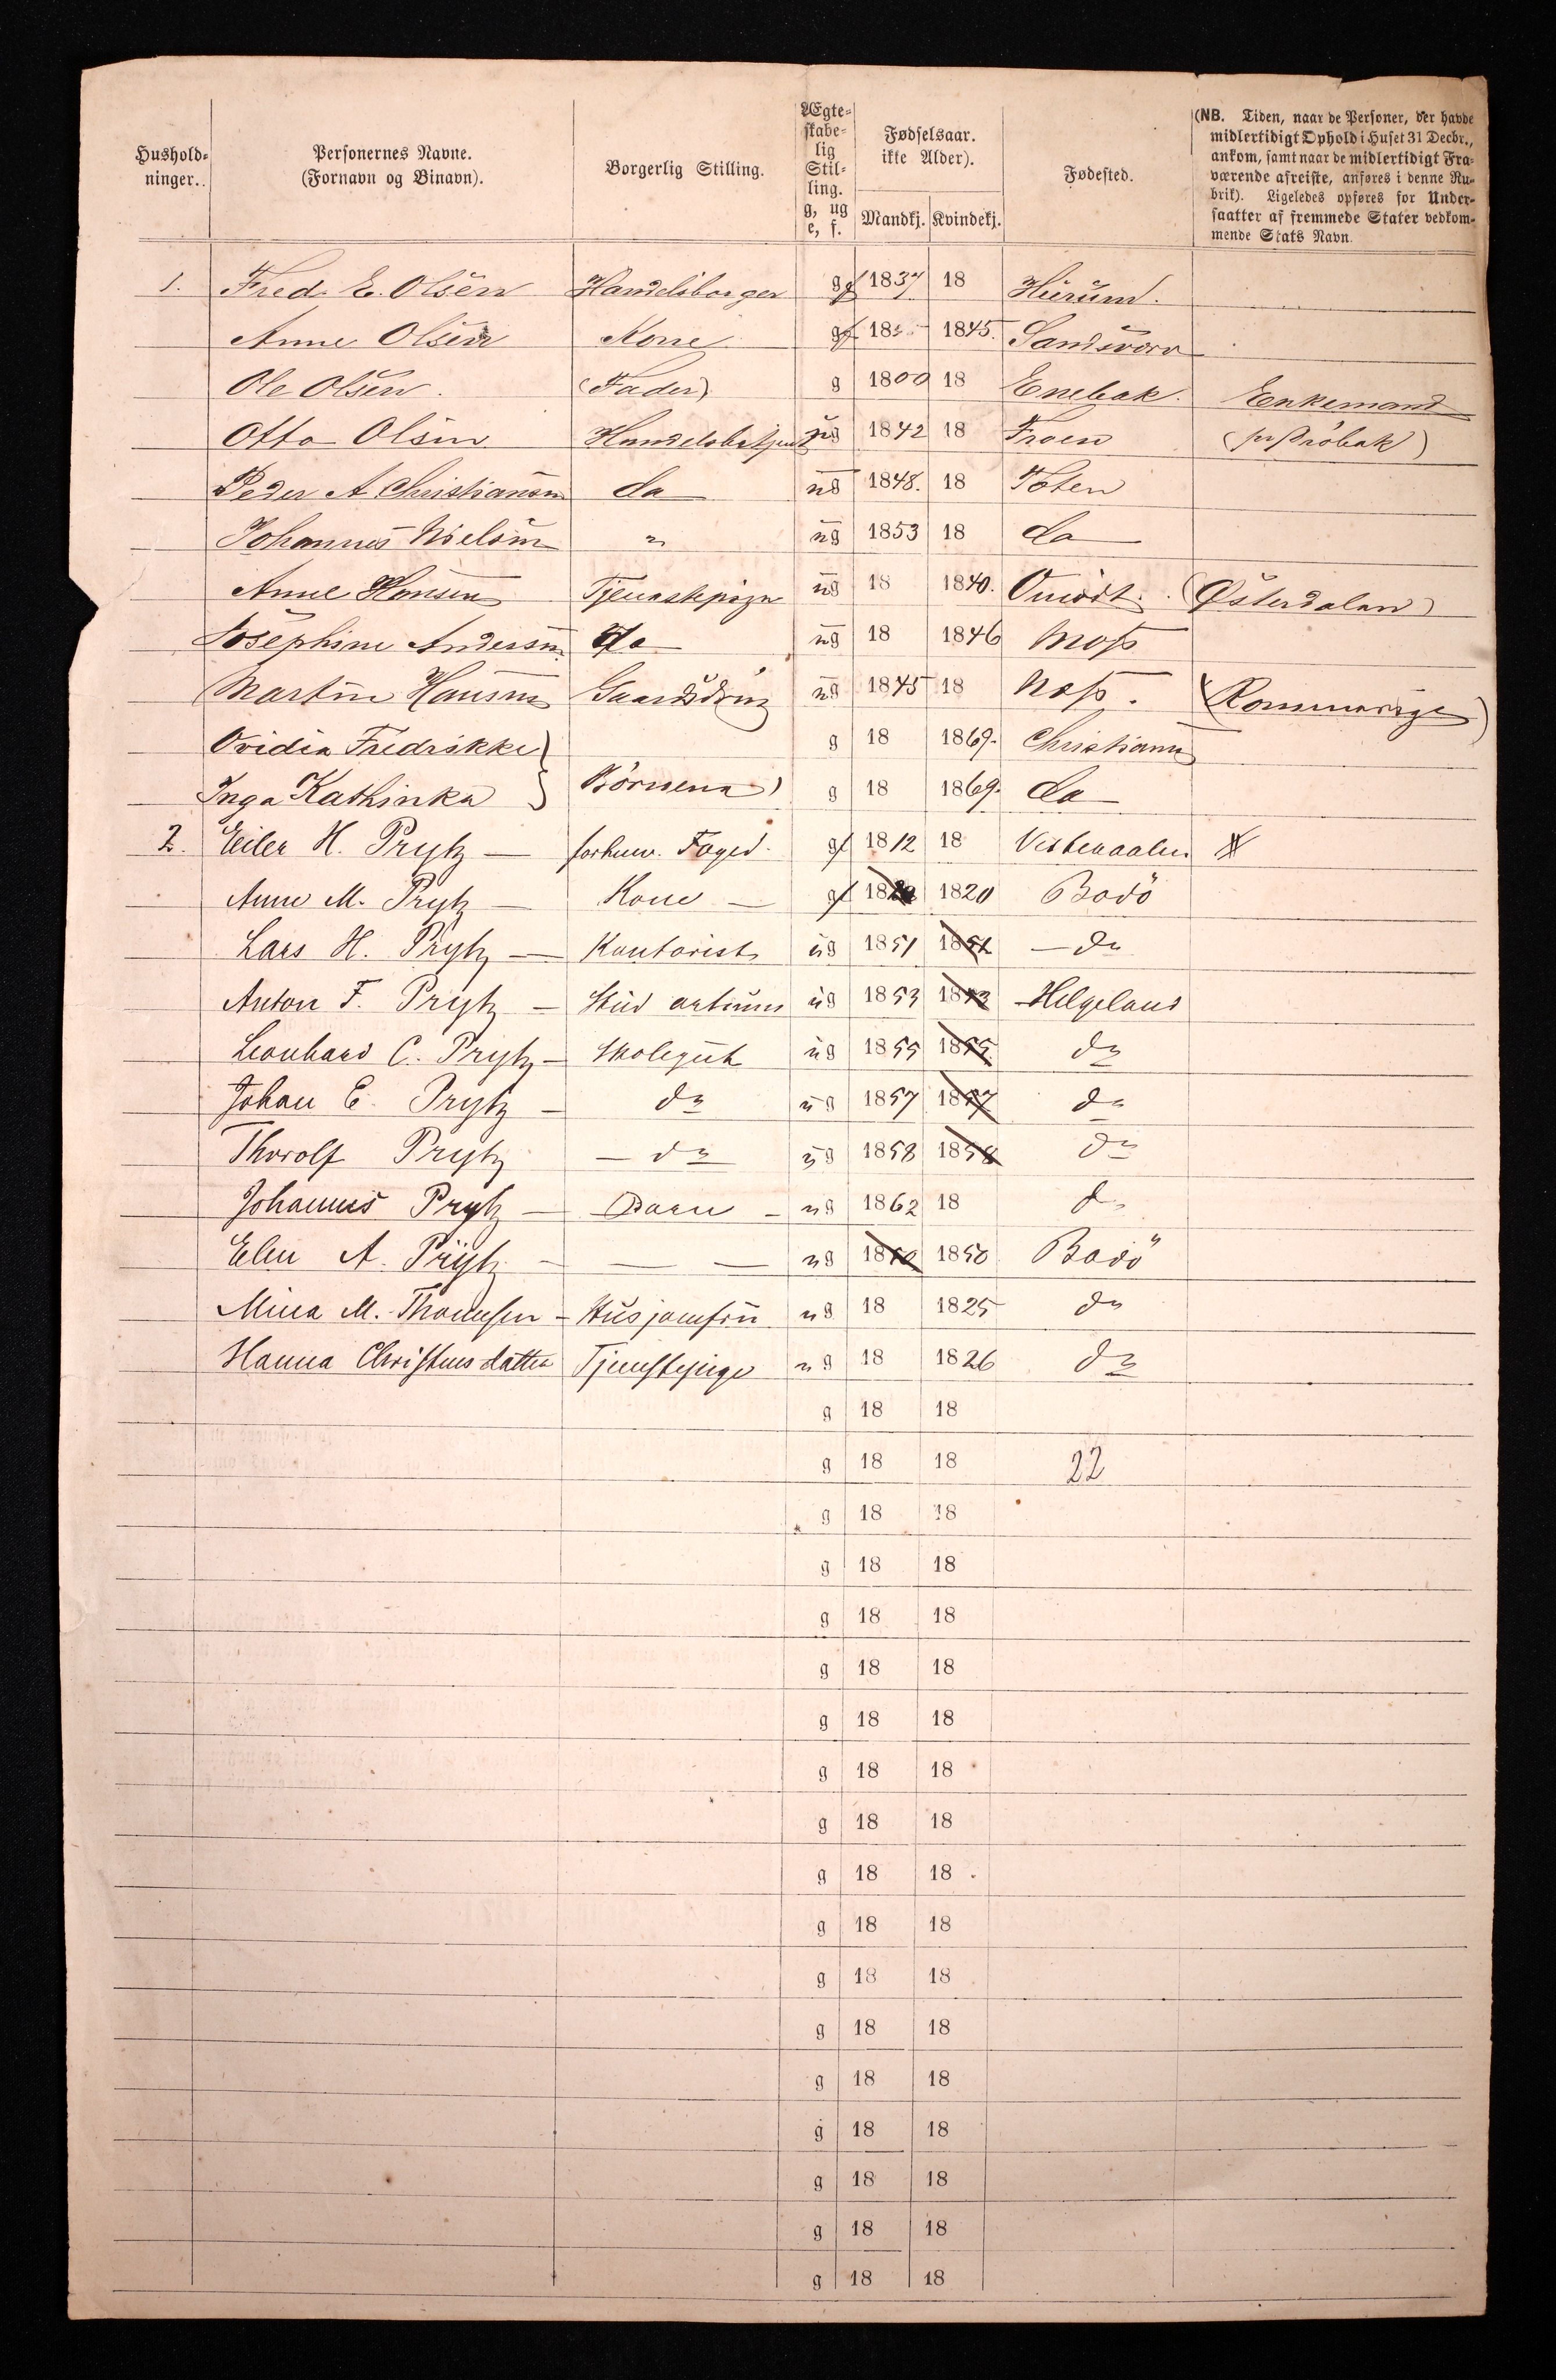 Hushold-
ninger.
Personernes Navne.
(Fornavn og Binavn).
Borgerlig Stilling.
Ægte-
skabe-
lig
Stil-
ling.
g, ug
e, f.
Fødselsaar.
ikke Alder).
Mandkj. Kvindekj.
Fødested.
(NB. Tiden, naar de Personer, der havde
midlertidigt Ophold i Huset 31 Decbr.,
ankom, samt naar de midlertidigt Fra-
værende afreiste, anføres i denne Ru-
brik). Ligeledes opføres for Under-
saatter af fremmede Stater vedkom-
mende Stats Navn.
1. Fred. E. Olsen Handelsborger g 1837 18 Hurum.
Anne Olsen Kone g 18 1845. Sandsvær
Ole Olsen. (Fader) g 1800 18 Enebak. Enkemand
Otto Olsen Handelsbetjent ug 1842 18 Froen (pr Dröbak)
Peder A Christiansen do ug 1848. 18 Toten
Johannes Nielsen " ug 1853 18 do
Anne Hansen Tjenestepige ug 18 1840. (Österdalen)
Josephine Andersen do ug 18 1846 Moss
Martin Hansen Gaardsdreng ug 1845 18 Næs. (Rommerige)
Ovidia Fredrikke } g 18 1869. Christiania
Inga Kathinka } Börnene) g 18 1869. do
2. Eiler H. Prytz — forhenv. Foged. g 1812 18 Vesteraalen
Anne M. Prytz — Kone — g 18 1820 Bodö
Lars H. Prytz — Kontorist ug 1851 18 — do
Anton F. Prytz — Stud artium ug 1853 1853 Helgeland
Leonhard C. Prytz — Skolegut ug 1855 1855 do
Johan E. Prytz — do ug 1857 1857 do
Thorolf Prytz — do ug 1858 1858 do
Johannes Prytz — Barn — ug 1862 18 do
Elen A. Prytz — — — ug 1850 1850 Bodö
Mina M. Thomesen — Husjomfru ug 18 1825 do
Hanna Christensdatter Tjenestepige ug 18 1826 do
g 18 18
g 18 18 22
g 18 18
g 18 18
g 18 18
g 18 18
g 18 18
g 18 18
g 18 18
g 18 18
g 18 18
g 18 18
g 18 18
g 18 18
g 18 18
g 18 18
g 18 18
g 18 18